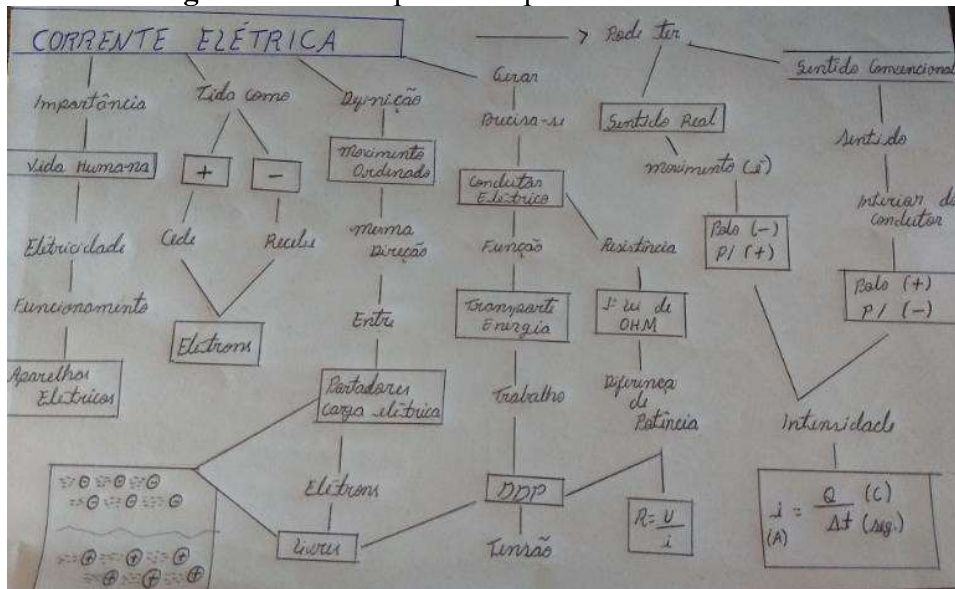 CORRENTE ELÉTRICA
Pode ter
Importância
Vida Humana
Eletricidade
Funcionamento
Aparelhos
Elétricos
Tida como
+
-
Cede
Recebe
Elétrons
Definição
Movimento
Ordenado
mesma
Direção
Entre
Portadores
carga elétrica
Elétrons
Livres
Gerar
Precisa-se
Condutor
Elétrico
Função
Transporte
Energia
Trabalho
DDP
Tensão
Resistência
1ª Lei de
OHM
Diferença
de
Potência
R = U
i
Sentido Real
movimento (ē)
Polo (-)
P/ (+)
Sentido Convencional
Sentido
Interior do
Condutor
Polo (+)
P/ (-)
Intensidade
i = Q (C)
(A) Δt (seg.)